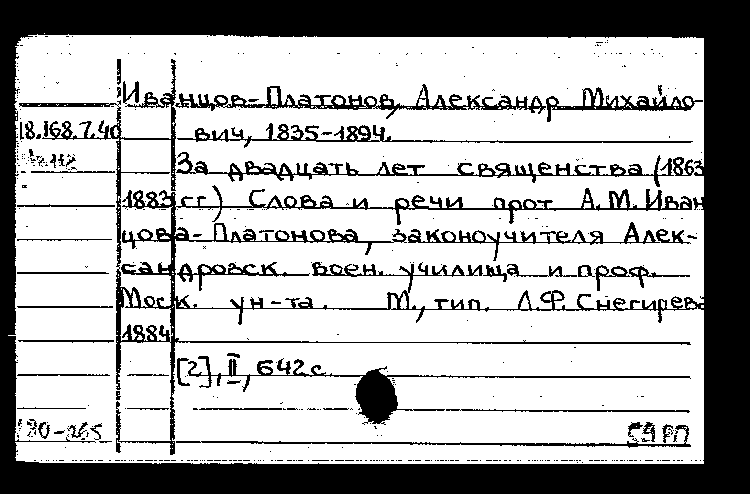 Иванцов-Платонов, Александр Михайло-
18.168.7.40 вич, 1835-1894.
За двадцать лет священства (1863
1883 гг.) Слова и речи прот А.М. Иван
цова-Платонова, законоучителя Алек-
сандровск. воен. училища и проф.
Моск. ун-та. М., тип. Л.Ф. Снегирева
1884.
[2], II, 642 с.
180-265 59 РП